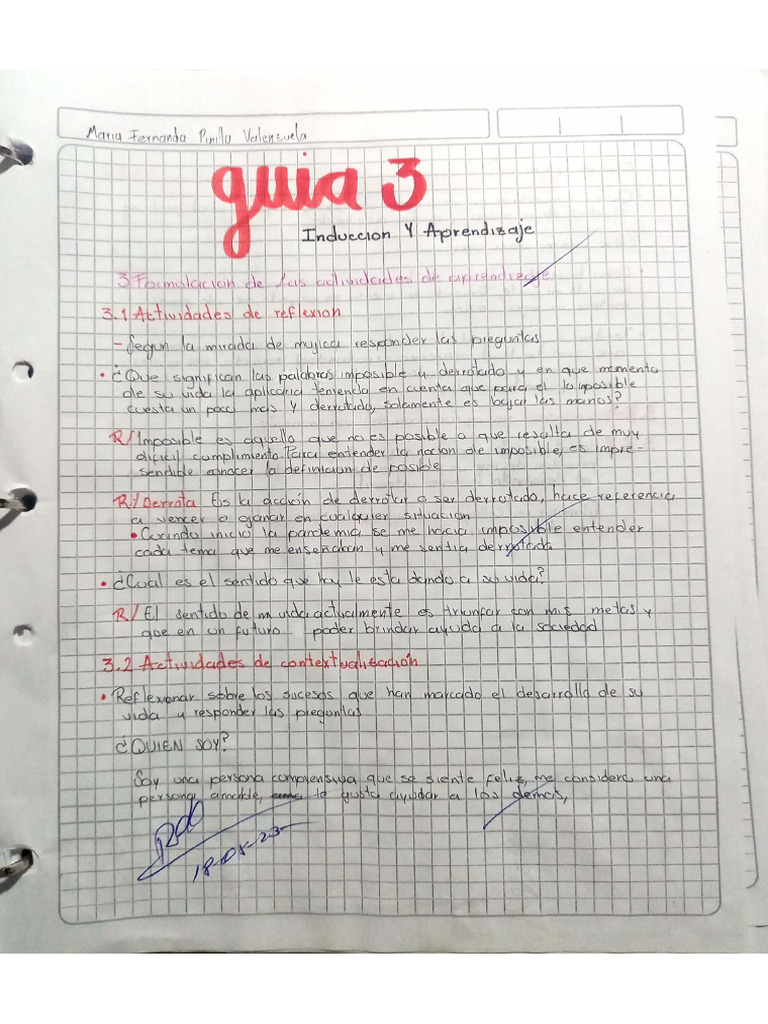 Maria Fernanda Pinilla Valenzuela
guia 3
Induccion Y Aprendizaje
3 Formulacion de las actividades de aprendizaje
3.1 Actividades de reflexion
- Segun la mirada de mujica responder las preguntas
• ¿Que significan las palabras imposible y derrotado y en que momento
de su vida la aplicaria teniendo en cuenta que para el la imposible
cuesta un poco mas y derrotado, solamente es bajar las manos?
R/ Imposible es aquello que no es posible o que resulta de muy
dificil cumplimiento. Para entender la nocion de imposible, es impre-
sendible conocer la definicion de posible
R/ Derrota Es la acción de derrotar o ser derrotado, hace referencia
a vencer o ganar en cualquier situacion
• Cuando inicio la pandemia se me hacia imposible entender
cada tema que me enseñaban y me sentia derrotada
• ¿Cual es el sentido que hoy le esta dando a su vida?
R/ El sentido de mi vida actualmente es triunfar con mis metas y
que en un futuro poder brindar ayuda a la sociedad
3.2 Actividades de contextualización
• Reflexionar sobre los sucesos que han marcado el desarrollo de su
vida y responder las preguntas
¿QUIEN SOY?
Soy una persona comprensiva que se siente feliz, me considero una
persona amable, le gusta ayudar a los demas,
18-08-23